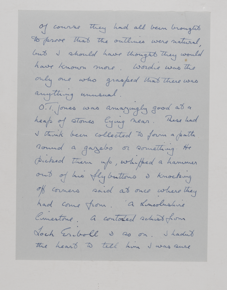 Of course they had all been brought
to prove that the outlines were natural,
but I should have thought they would
have known more. Wordie was the
only one who grasped that there was
anything unusual.
O.T. Jones was amazingly good at a
heap of stones lying near. These had
I think been collected to form a path
round a gazebo or something. He
picked them up, whipped a hammer
out of his fly buttons &
knocking
off corners said at once where they
had come from. A Lincolnshire
limestone, A contorted schist from
Loch Eriboll & so on. I hadn't
the heart to tell him I was sure